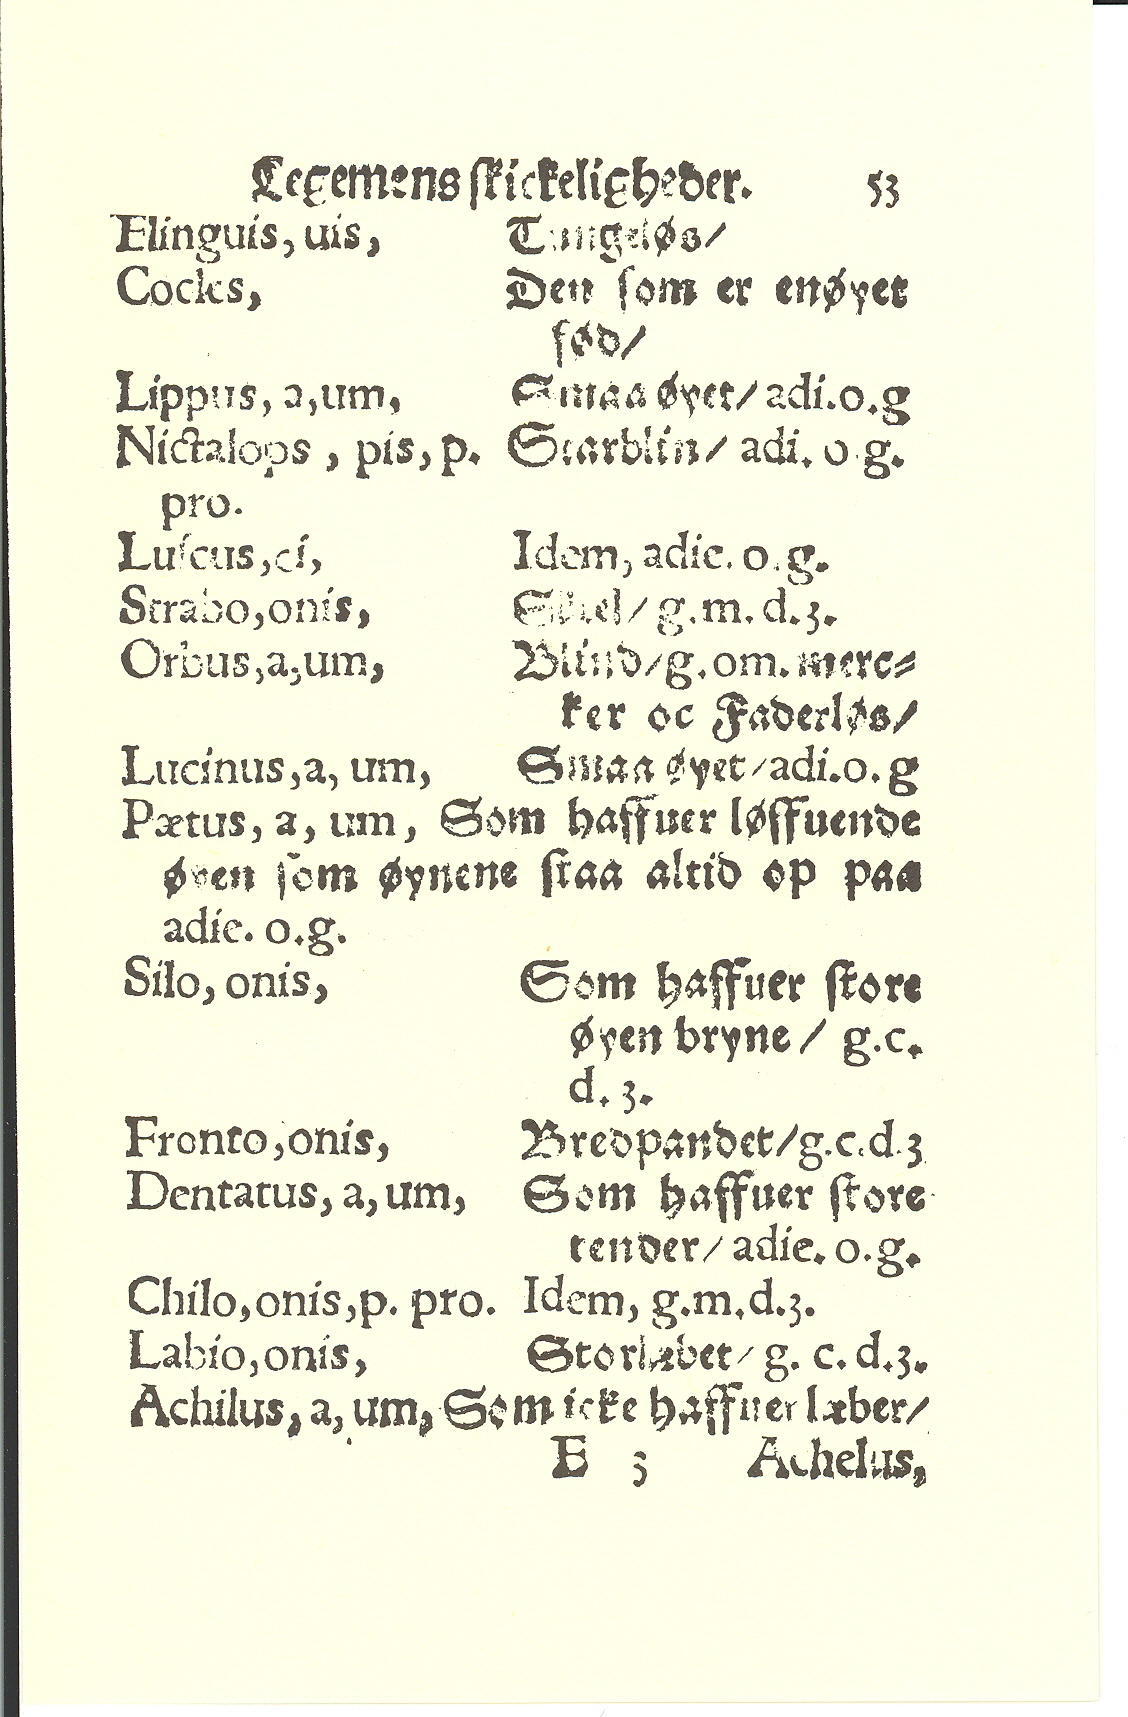 Legemens skickeligheder. 53
Elinguis, uis, Tungeløs/
Cocles, Den som er enøyet
fød/
Lippus, a,um, Smaa øyet/ adi.o.g
Nictalops , pis, p. Starblin/ adi. o.g.
pro.
Luſcus,ci, Idem, adie. o.g.
Strabo,onis, g.m. d.3.
Orbus,a,um, Blind/g.om. merc⸗
ker oc Faderløs/
Lucinus,a, um, Smaa øyet/adi.o.g
Pætus, a, um, Som haffuer løffuende
øyen som øynene staa altid op paa
adie. o.g.
Silo, onis, Som haffuer store
øyen bryne / g.c.
d. 3.
Fronto,onis, Bredpandet/g.c.d.3
Dentatus, a, um, Som haffuer store
tender/ adie. o.g.
Chilo,onis,p. pro. Idem, g.m.d.3.
Labio,onis, Storlæbet/ g. c. d.3.
Achilus, a, um, Som icke haffuer læber/
E 3 Achelus,